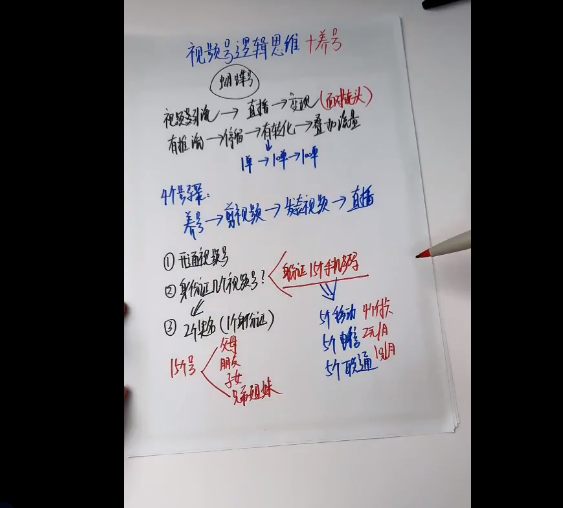 视频号逻辑思维+养号
蝴蝶号
视频号引流→直播→变现(面对镜头)
有推流→停留→有转化→叠加流量
1单→10单→100单
4个步骤:
养号→剪视频→发布视频→直播
①开通视频号
②身份证几个视频号?
验证15个手机号
③2个实名(1个身份证)
15个号
父母
朋友
子女
兄弟姐妹
5个移动
5个电信 2元/月
5个联通